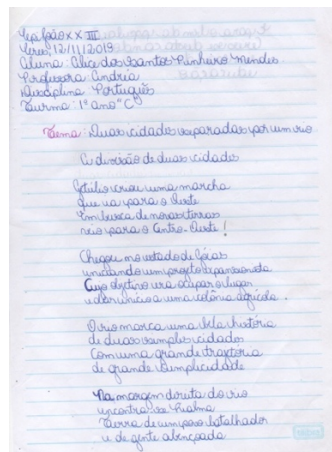 Cepi João XXIII
Ceres, 12/11/2019
Aluna: Alice dos Santos Pinheiro Mendes
Professora: Andréia
Disciplina: Português
Turma: 1º ano "C"
Tema: Duas cidades separadas por um rio
A divisão de duas cidades
Getúlio criou uma marcha
que ia para o Oeste
Em busca de novas terras
veio para o Centro-Oeste!
Chegou no estado de Goiás
iniciando um projeto expansionista
Cujo objetivo era ocupar o lugar
e dar início a uma colônia agrícola.
O rio marca uma bela história
de duas simples cidades
Com uma grande trajetória
de grande simplicidade
Na margem direita do rio
encontra-se Rialma
Terra de um povo batalhador
e de gente abençoada